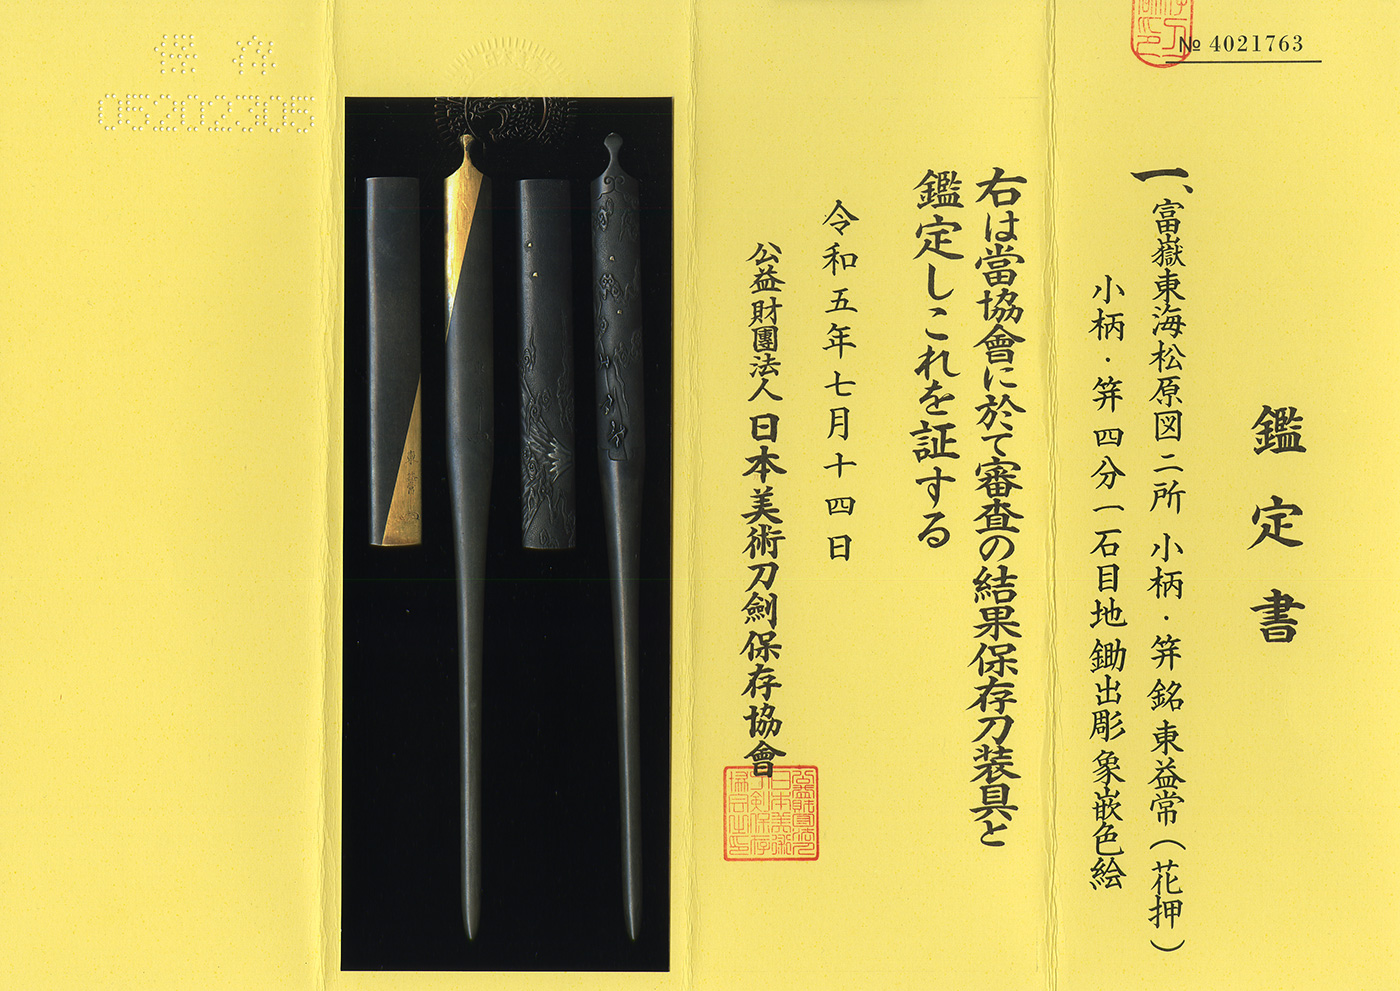 № 4021763
鑑定書
一、富嶽東海松原図二所 小柄・笄銘東益常(花押)
小柄・笄四分一石目地鋤出彫象嵌色絵
右は當協會に於て審査の結果保存刀装具と
鑑定しこれを証する
令和五年七月十四日
公益財團法人日本美術刀劍保存協會
保存
05202305